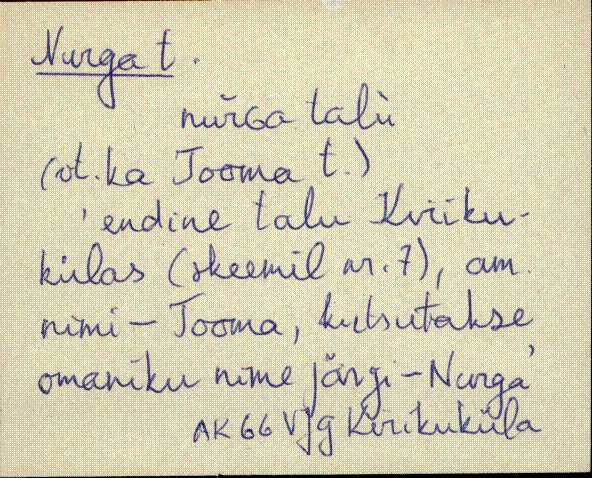 Nurga t.
nurGa talù
(vt. ka Tooma t.)
'endine talu Kiriku-
külas (skeemil nr. 7), am.
nimi – Tooma, kutsutakse
omaniku nime järgi – Nurga'
AK 66 VJg Kirikuküla